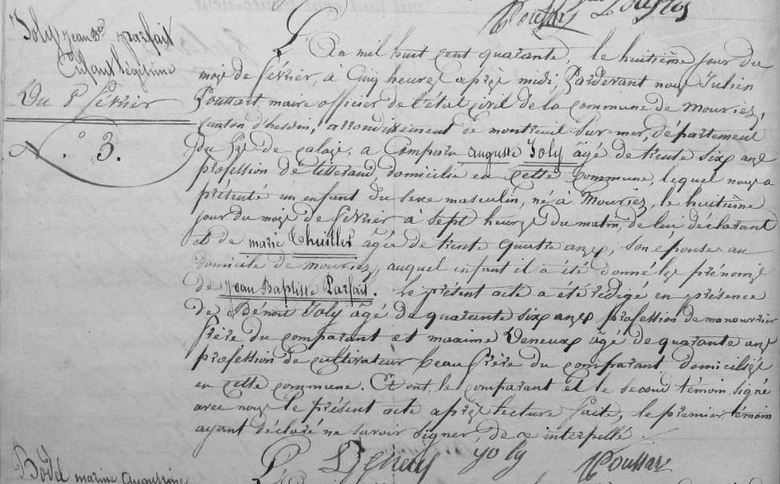 Joly Jean Bte Parfait
Enfant légitime
Du 8 février
n° 3.
L'An mil huit cent quarante, le huitième jour du
mois de février, à cinq heures après midi, Pardevant nous Julien
Poussart, maire officier de l'état civil de la commune de Mouriez,
canton d'hesdin, arrondissement de montreuil sur mer, département
du Pas de calais, a comparu auguste Joly âgé de trente six ans
profession de tisserand, domicilié en cette Commune, lequel nous a
présenté un enfant du sexe masculin, né à Mouriez, le huitième
jour du mois de février à sept heures du matin, de lui déclarant
et de marie Thuillier âgée de trente quatre ans, son épouse au
domicile de mouriez, auquel enfant il a été donné les prénoms
de Jean Baptiste Parfait. Le présent acte a été rédigé en présence
de Bénoit Joly âgé de quarante six ans profession de manouvrier
frère du comparant et maxime Deneux âgé de quarante ans
profession de cultivateur beau frère du comparant domiciliés
en cette commune. Et ont le comparant et le second témoin signé
avec nous le présent acte après lecture faite, le premier témoin
ayant déclaré ne savoir signer, de ce interpellé.
Deneux Joly Poussart
Bodel marine augustine